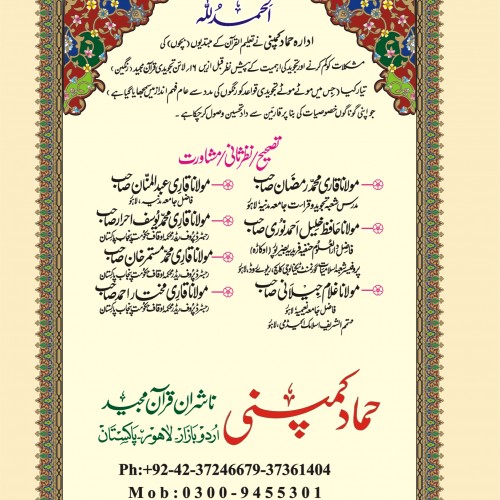 الحمدللہ
ادارہ حماد کمپنی نے تعلیم القرآن کے مبتدیوں (بچوں) کی
مشکلات کو کم کرنے اور تجوید کی اہمیت کے پیش نظر قبل ازیں ۱۶ لائن تجویدی قرآن مجید (رنگین)
تیار کیا (جس میں موٹے موٹے تجویدی قواعد کو رنگوں کی مدد سے عام فہم انداز میں سمجھایا گیا ہے)
جو اپنی گوناگوں خصوصیات کی بنا پر قارئین سے دادِ تحسین وصول کر چکا ہے۔
تصحیح/نظرثانی/مشاورت
مولانا قاری محمد رمضان صاحب
مدرس شعبہ تجوید و قراءت جامعہ مدنیہ لاہور
مولانا حافظ خلیل احمد نوری صاحب
فاضل دارالعلوم حنفیہ فریدیہ بصیرپور (اوکاڑہ)
مولانا غلام جیلانی صاحب
فاضل جامعہ نعیمیہ لاہور
مہتمم الشریف اسلامک اکیڈمی، لاہور
مولانا قاری عبدالمنان صاحب
فاضل جامعہ مدنیہ، لاہور
مولانا قاری محمد یوسف احرار صاحب
رجسٹرڈ پروف ریڈر محکمہ اوقاف حکومت پنجاب پاکستان
مولانا قاری محمد مستمر خان صاحب
رجسٹرڈ پروف ریڈر محکمہ اوقاف حکومت پنجاب پاکستان
مولانا قاری مختار احمد صاحب
رجسٹرڈ پروف ریڈر محکمہ اوقاف حکومت پنجاب پاکستان
حماد کمپنی
ناشران قرآن مجید
اردو بازار۔ لاہور۔ پاکستان
Ph:+92-42-37246679-37361404
Mob:0300-9455301